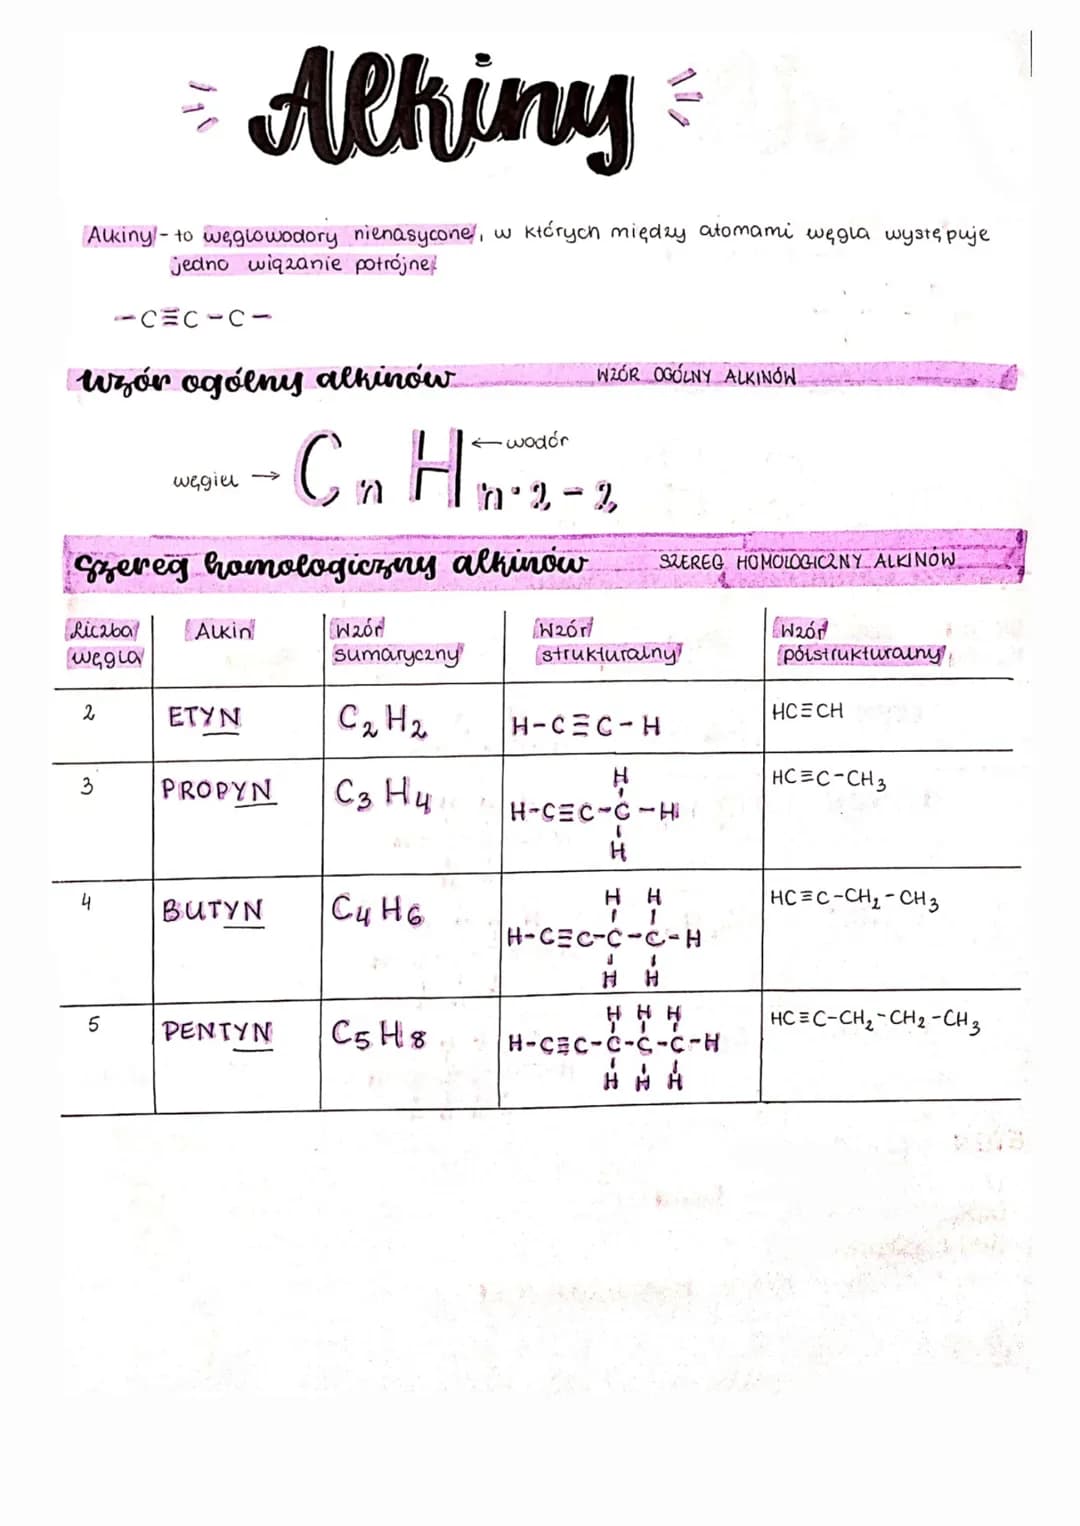 Alkiny
Alkiny - to węglowodory nienasycone, w których między atomami węgla występuje
jedno wiązanie potrójne
-C≡C-C-
Wzór ogólny alkinów WZÓR OGÓLNY ALKINÓW
węgiel → CnHn·2-2 ← wodór
Szereg homologiczny alkinów SZEREG HOMOLOGICZNY ALKINÓW
Liczba węgla | Alkin | Wzór sumaryczny | Wzór strukturalny | Wzór półstrukturalny
2 ETYN C2H2 H-C≡C-H HC≡CH
H
3 PROPYN C3H4 H-C≡C-C-H HC≡C-CH3
H
H H
4 BUTYN C4H6 H-C≡C-C-C-H HC≡C-CH2-CH3
H H
H H H
5 PENTYN C5H8 H-C≡C-C-C-C-H HC≡C-CH2-CH2-CH3
H H H